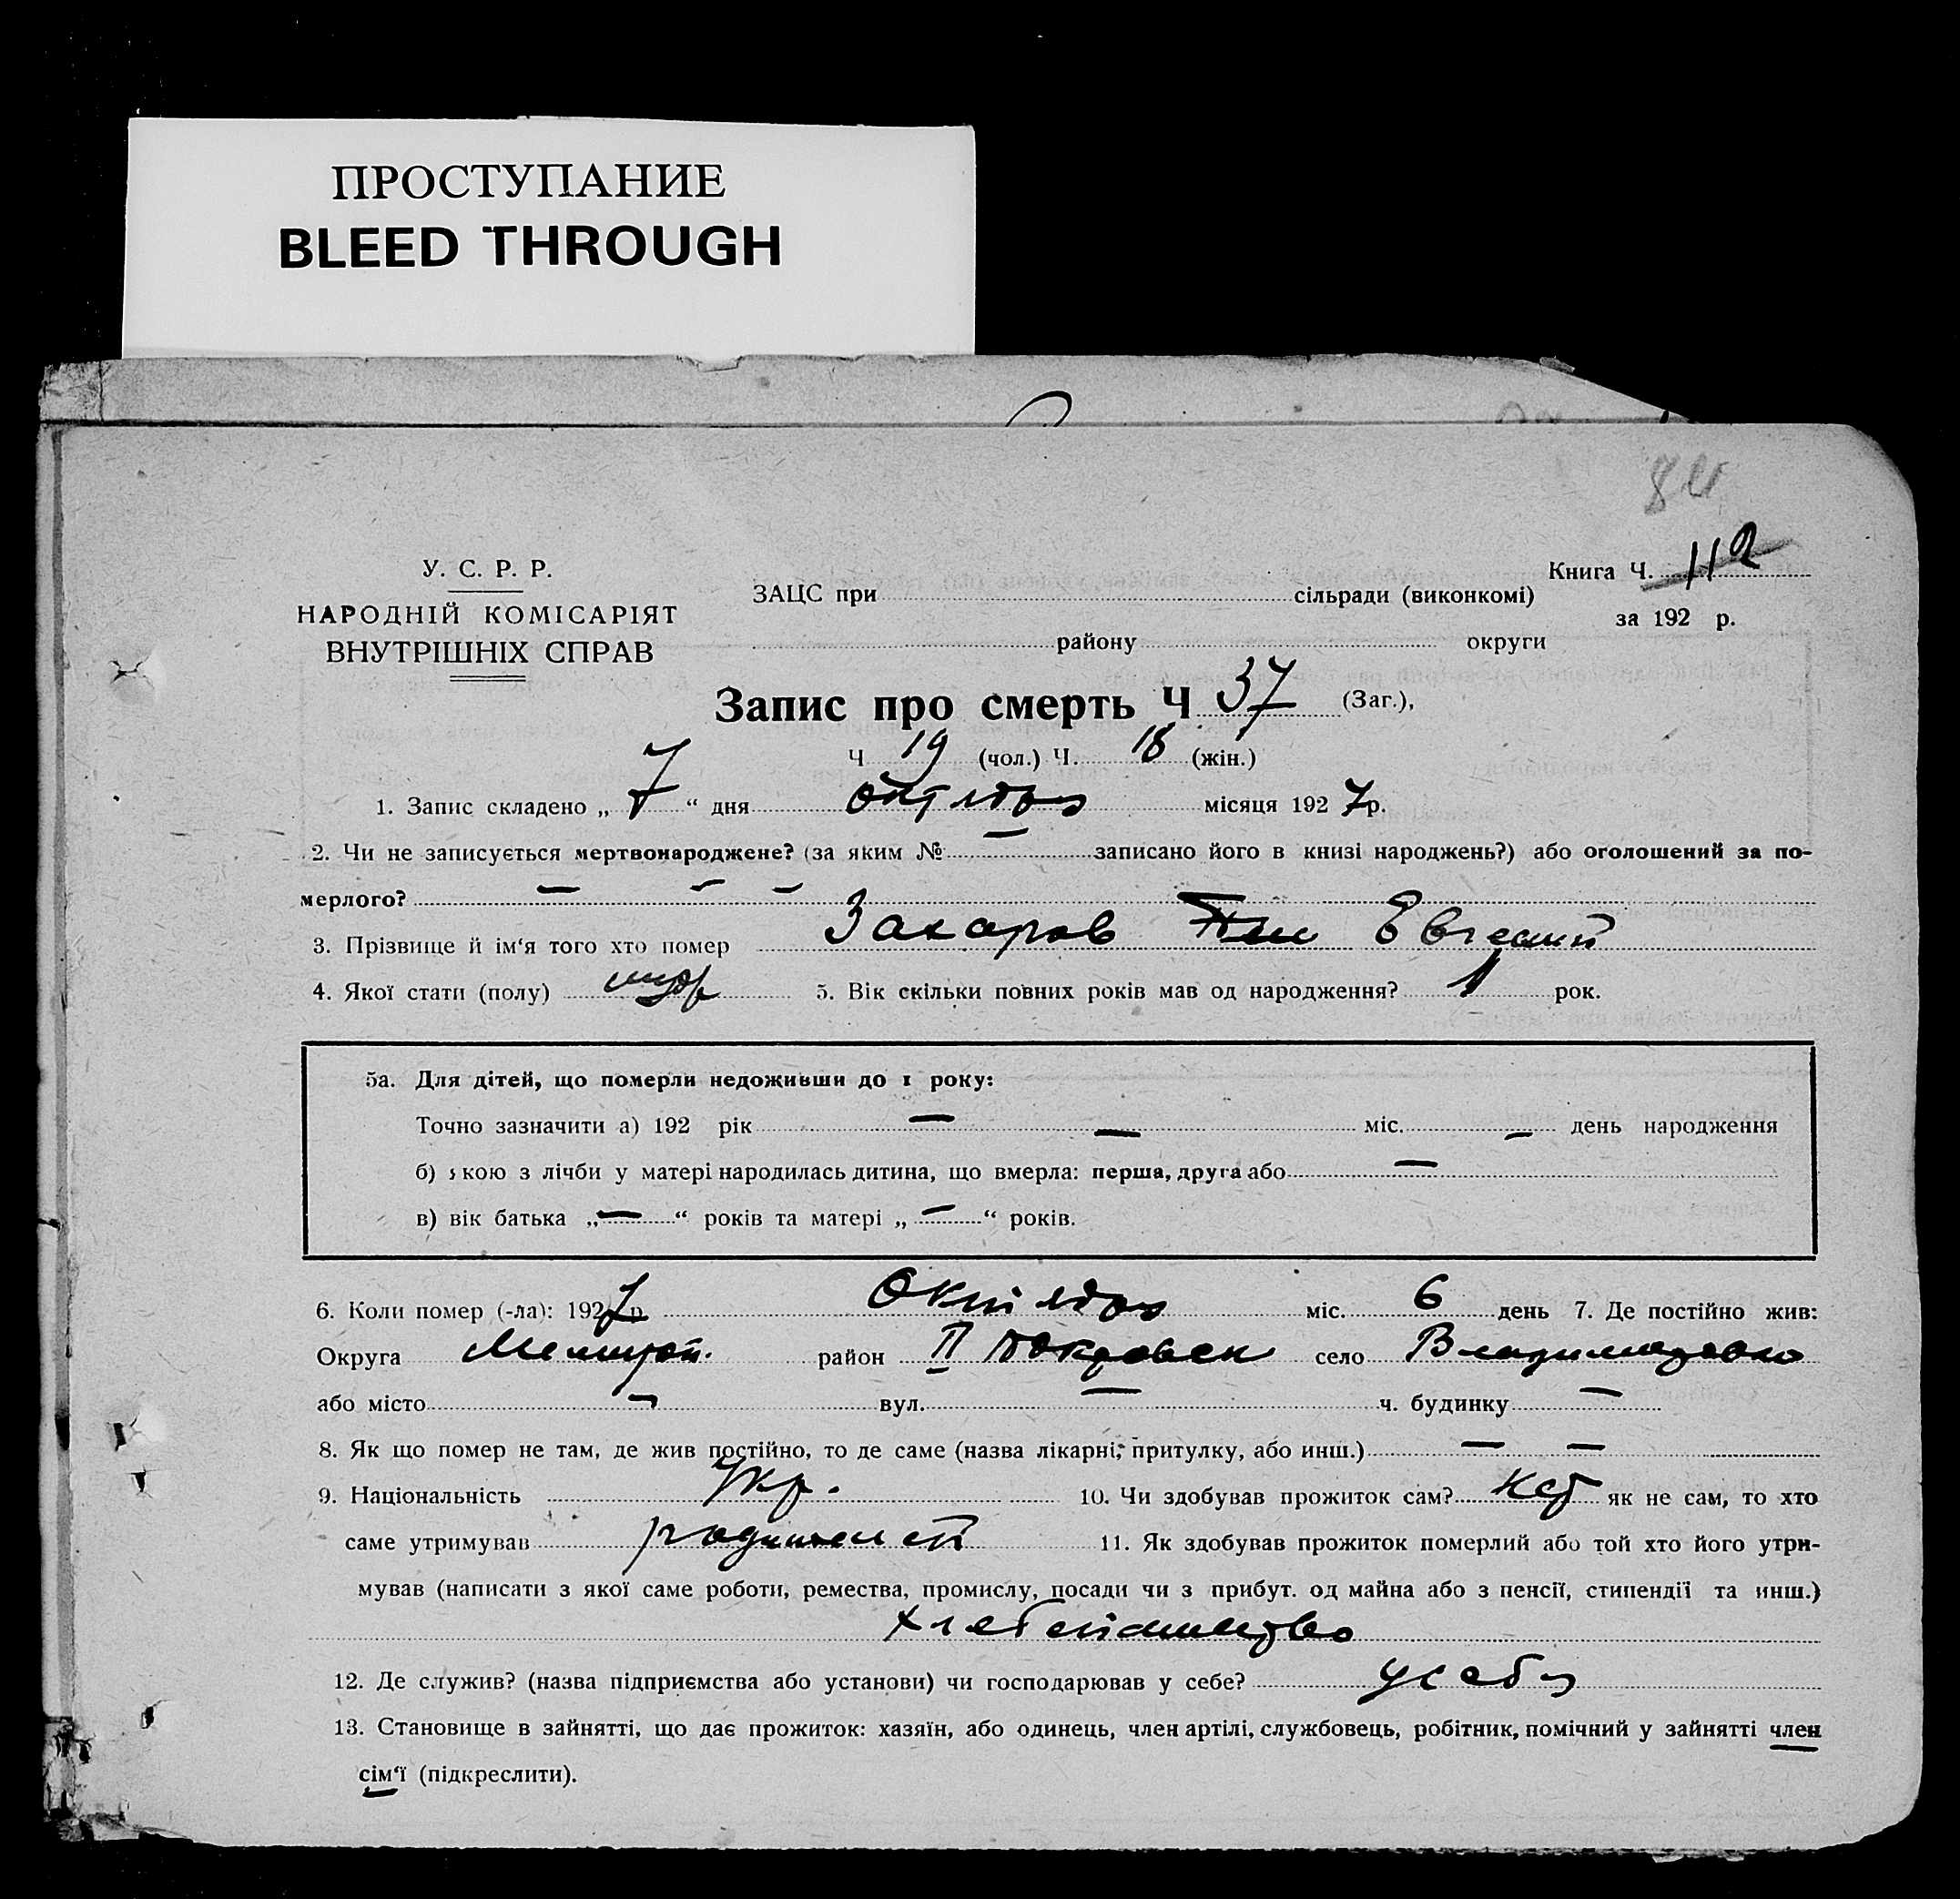 ПРОСТУПАНИЕ
BLEED THROUGH
У. С. Р. Р.
НАРОДНІЙ КОМІСАРІЯТ
ВНУТРІШНІХ СПРАВ
Книга Ч. 112
за 192 р.
ЗАЦС при сільради (виконкомі)
району округи
Запис про смерть Ч 37 (Заг.),
Ч 19 (чол.) Ч. 18 (жін.)
1. Запис складено „ 7 “ дня октября місяця 1927 р.
2. Чи не записується мертвонароджене? (за яким № — записано його в книзі народжень?) або оголошений за по-
мерлого? — — —
3. Прізвище й ім‘я того хто помер Захаров Евгений
4. Якої стати (полу) 5. Вік скільки повних років мав од народження? 1 рок.
5а. Для дітей, що померли недоживши до 1 року:
Точно зазначити а) 192 рік — — міс. — день народження
б) якою з лічби у матері народилась дитина, що вмерла: перша, друга або —
в) вік батька „ — “ років та матері „ — “ років.
6. Коли помер (-ла): 1927 р. Октября міс. 6 день 7. Де постійно жив:
Округа Мелитоп. район II Покровск село Владимировка
або місто — вул. — ч. будинку —
8. Як що помер не там, де жив постійно, то де саме (назва лікарні, притулку, або инш.) — —
9. Національність Укр. 10. Чи здобував прожиток сам? нет як не сам, то хто
саме утримував родителей 11. Як здобував прожиток померлий або той хто його утри-
мував (написати з якої саме роботи, ремества, промислу, посади чи з прибут. од майна або з пенсії, стипендії та инш.)
хлебопашество
12. Де служив? (назва підприємства або установи) чи господарював у себе? у себя
13. Становище в зайнятті, що дає прожиток: хазяїн, або одинець, член артілі, службовець, робітник, помічний у зайнятті член
сім‘ї (підкреслити).